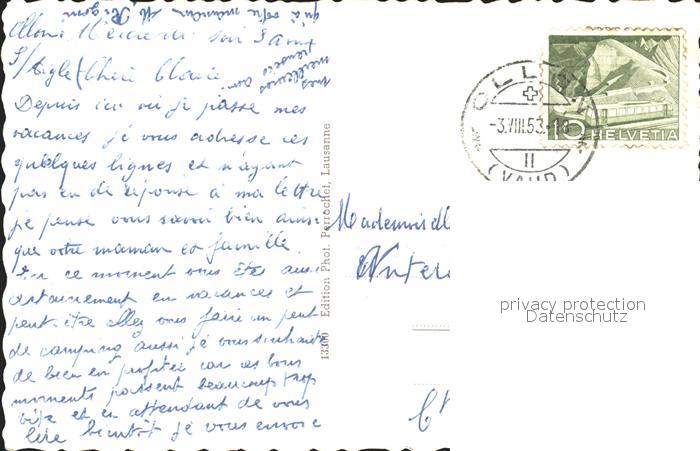 Depuis ici où je passe mes
vacances je vous adresse ces
quelques lignes et n'ayant
pas eu de réponse à ma lettre
je pense vous savoir bien ainsi
que votre maman et famille.
En ce moment vous êtes aussi
certainement en vacances et
peut-être allez vous faire un peu
de camping aussi je vous souhaite
de bien en profiter car ces bons
moments passent beaucoup trop
vite et en attendant de vous
lire bientôt je vous envoie
mes
meilleures
pensées
qu'à votre maman
13300 Edition Phot. Perrochet, Lausanne
OLLON
-3.VIII.53.-18
II
(VAUD)
5 HELVETIA
Mademoisell
privacy protection
Datenschutz